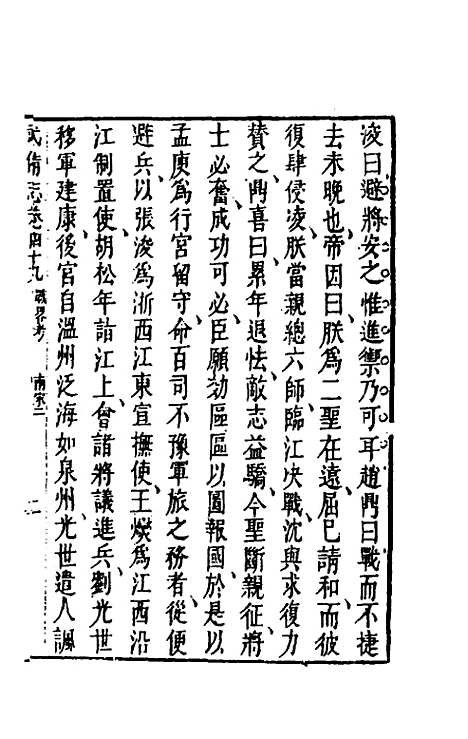 浚曰避將安之惟進禦乃可耳趙鼎曰戰而不捷
去未晚也帝因曰朕爲二聖在遠屈已請和而彼
復肆侵凌朕當親總六師臨江决戰沈與求復力
贊之鼎喜曰累年退怯敵志益驕今聖斷親征將
士必奮成功可必臣願効區區以圖報國於是以
孟庾爲行宮留守命百司不豫軍旅之務者從便
避兵以張浚爲浙西江東宣撫使王𤫉爲江西沿
江制置使胡松年詣江上會諸將議進兵劉光世
移軍建康後宮自溫州泛海如泉州光世遣人諷
武備志卷四十九 戰畧考 南宋二 二